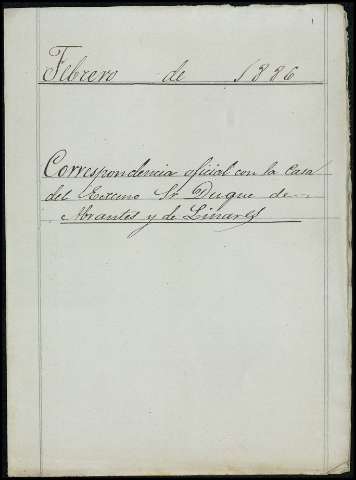 Febrero de 1886
Correspondencia oficial con la Casa
del Excmo Sr Duque de
Abrantes y de Linares